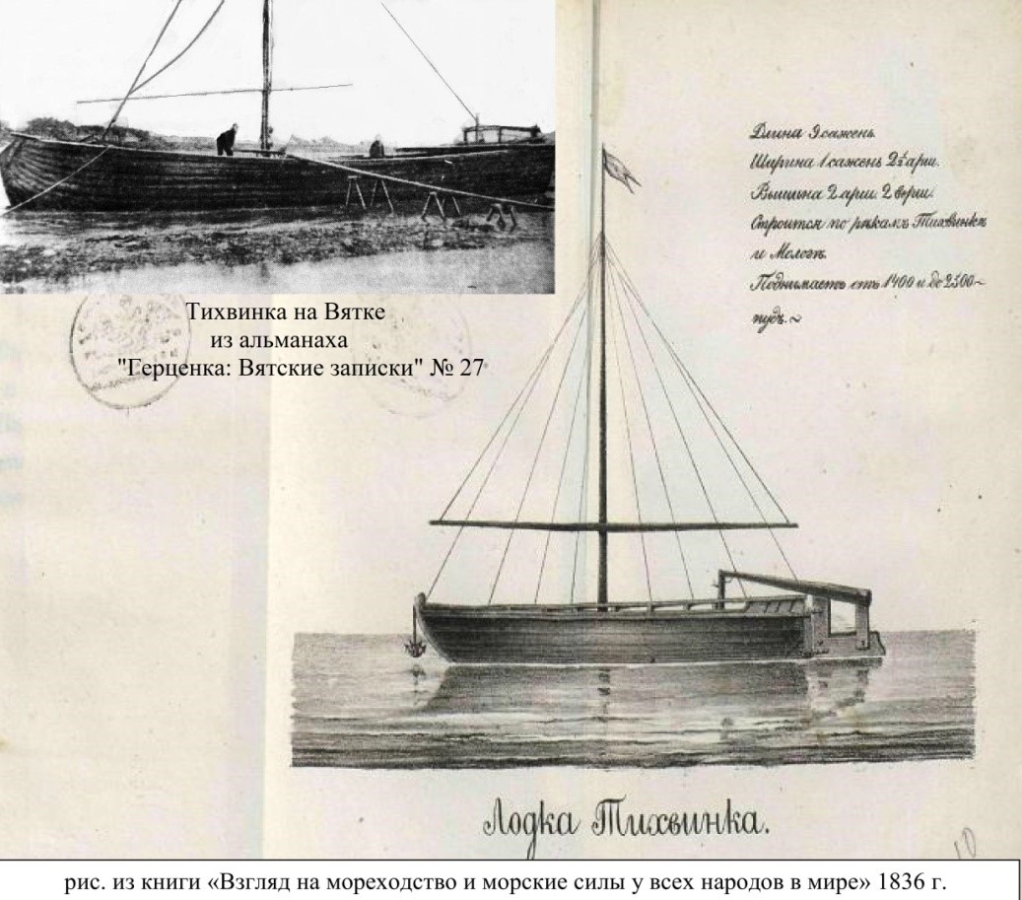 Тихвинка на Вятке
из альманаха
"Герценка: Вятские записки" № 27
Длина 9 сажень.
Ширина 1 сажень 2½ арш.
Вышина 2 арш. 2 вérш.
Строится по рѣкамъ Тихвинкѣ
и Мологѣ.
Поднимаетъ отъ 1400 и до 2500
пудъ.
Лодка Тихвинка.
10
рис. из книги «Взгляд на мореходство и морские силы у всех народов в мире» 1836 г.